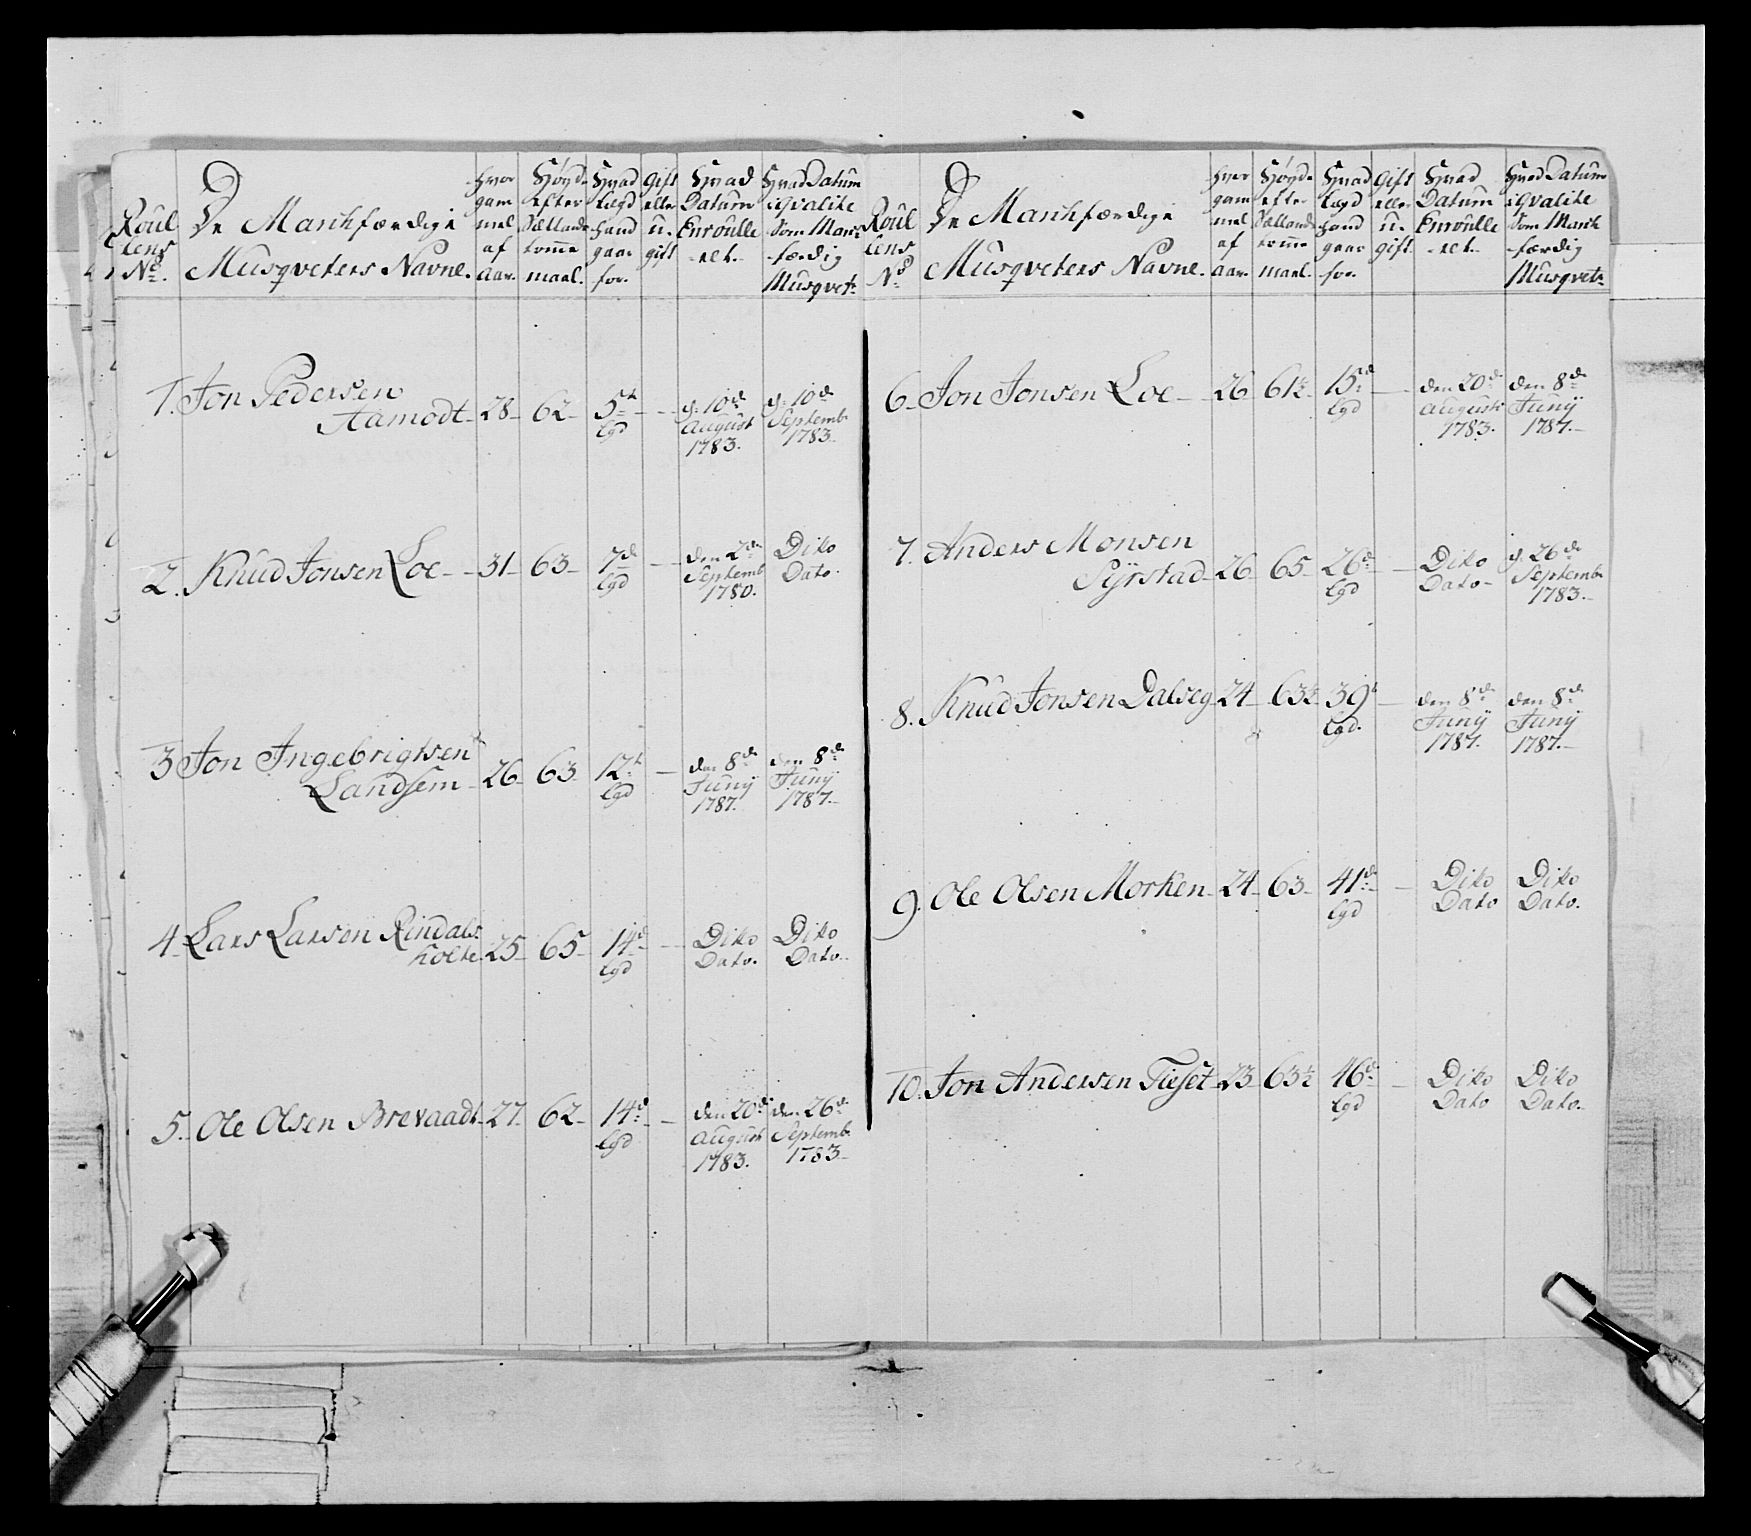 Roul
lens
No.
De Marchfærdige
Musqveters Navne.
Hvor
gam
mel
af
Aar.
Høyd
efter
Sællands
tomme
maal.
Hvad
Lægd
hand
gaar
for.
Gift
eller
u-
gift
Hvad
Datum
Enroulle
-ret.
Hvad Datum
i Qvalite
Som March
færdig
Musqvet:
1. Jon Pedersen
Aamodt - 28 - 62 - 5te - d: 10de d: 10de
Lgd August Septemb:
1783. 1783.
2. Knud Jonsen Loe - 31 - 63 - 7de - den 2den Dito
Lgd Septemb: Dato.
1780.
3 Jon Ingebrigtsen
Landsem - 26 - 63 12te - den 8de den 8de
Lgd Junij Junij
1787. 1787.
4. Lars Larsen Rindals-
holte - 25 - 65 - 14de - Dito Dito
Lgd Dato. Dato.
5. Ole Olsen Brevaadt - 27 - 62 - 14de - den 20de den 26de
Lgd August Septemb:
1783. 1783.
Roul
lens
No
De Marchfærdige
Musqveters Navne.
Hvor
gam
mel
af
Aar.
Høyd
efter
Sællands
tomme
maal.
Hvad
Lægd
hand
gaar
for.
Gift
eller
u-
gift.
Hvad
Datum
Enroulle
-ret.
Hvad Datum
i Qvalite
Som March
færdig
Musqvet:
6. Jon Jonsen Loe - 26 61½ 15de - den 20de den 8de
Lgd August Junij
1783. 1787.
7. Anders Monsen
Syrstad - 26 - 65 - 26de - Dito d. 26de
Lgd Dato - Septemb:
1783.
8. Knud Jonsen Dalseg - 24 - 63½ 39te - den 8de den 8de
Lgd. Junij Junij
1787. 1787.
9. Ole Olsen Morken - 24 - 63 - 41de - Dito Dito
Lgd Dato Dato.
10. Jon Andersen Tieset - 23 - 63½ 46de - Dito Dito
Lgd Dato Dato.